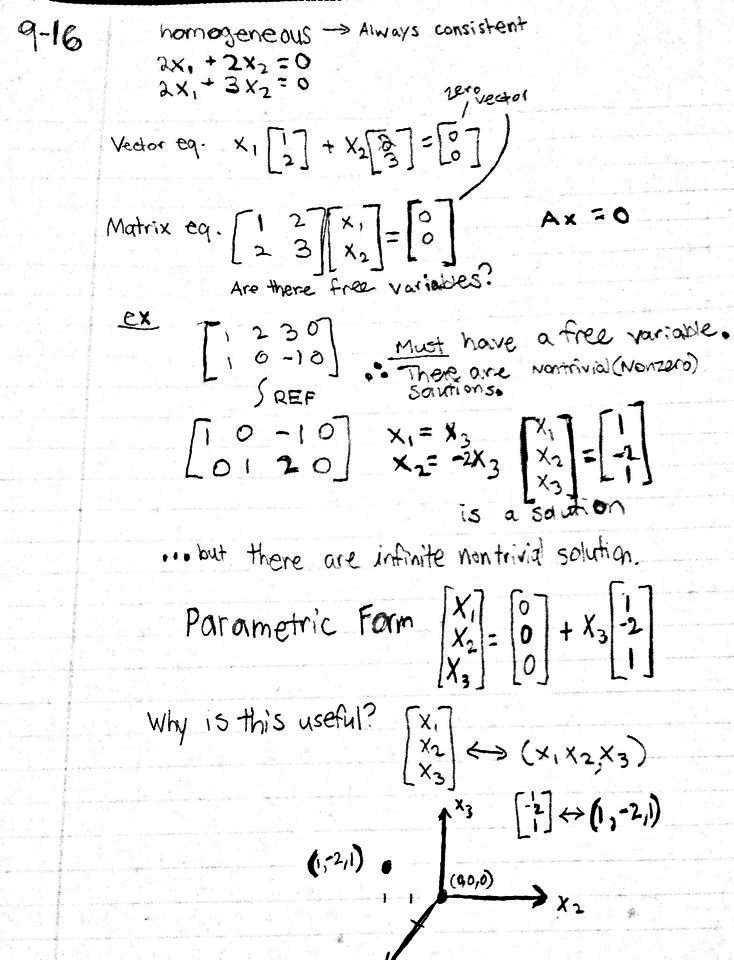 9-16
homogeneous → Always consistent
2x₁ + 2x₂ = 0
2x₁ + 3x₂ = 0
zero vector
Vector eq. x₁ [1 2] + x₂ [2 3] = [0 0]
Matrix eq. [1 2 2 3] [x₁ x₂] = [0 0] Ax = 0
Are there free variables?
ex
[1 2 3 0
1 0 -1 0]
Must have a free variable.
∴ There are nontrivial (Nonzero)
solutions.
REF
[1 0 -1 0
0 1 2 0]
x₁ = x₃
x₂ = -2x₃
[x₁ x₂ x₃] = [1 -2 1]
is a solution
...but there are infinite nontrivial solution.
Parametric Form [x₁ x₂ x₃] = [0 0 0] + x₃ [1 -2 1]
Why is this useful? [x₁ x₂ x₃] ↔ (x₁ x₂, x₃)
x₃ [1 -2 1] ↔ (1,-2,1)
(1,-2,1)
(0,0,0)
x₂